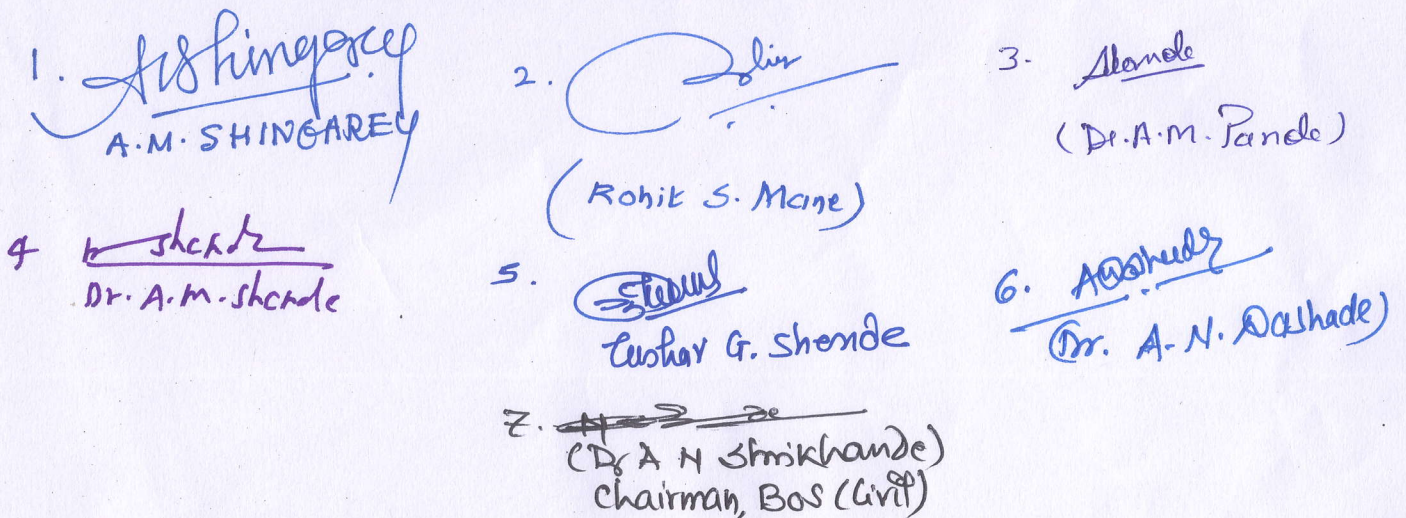 1. AShingarey
A.M. SHINGAREY
2.
(Rohit S. Mane)
3.
(Dr. A.M. Pande)
4 Shende
Dr. A.M. Shende
5.
Tushar G. Shende
6.
(Dr. A. N. Dashade)
7.
(Dr A N Shrikhande)
Chairman, BOS (Civil)